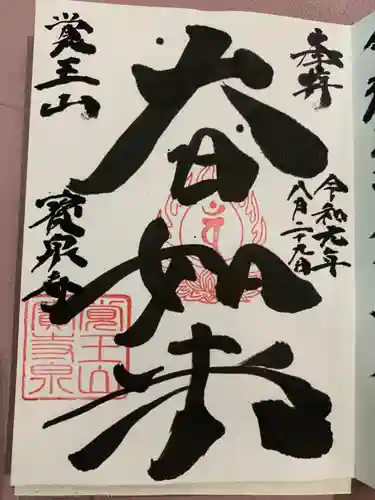 奉拝
令和元年
八月二九日
大日如来
覚王山
寶泉寺
覺王山
寶泉寺